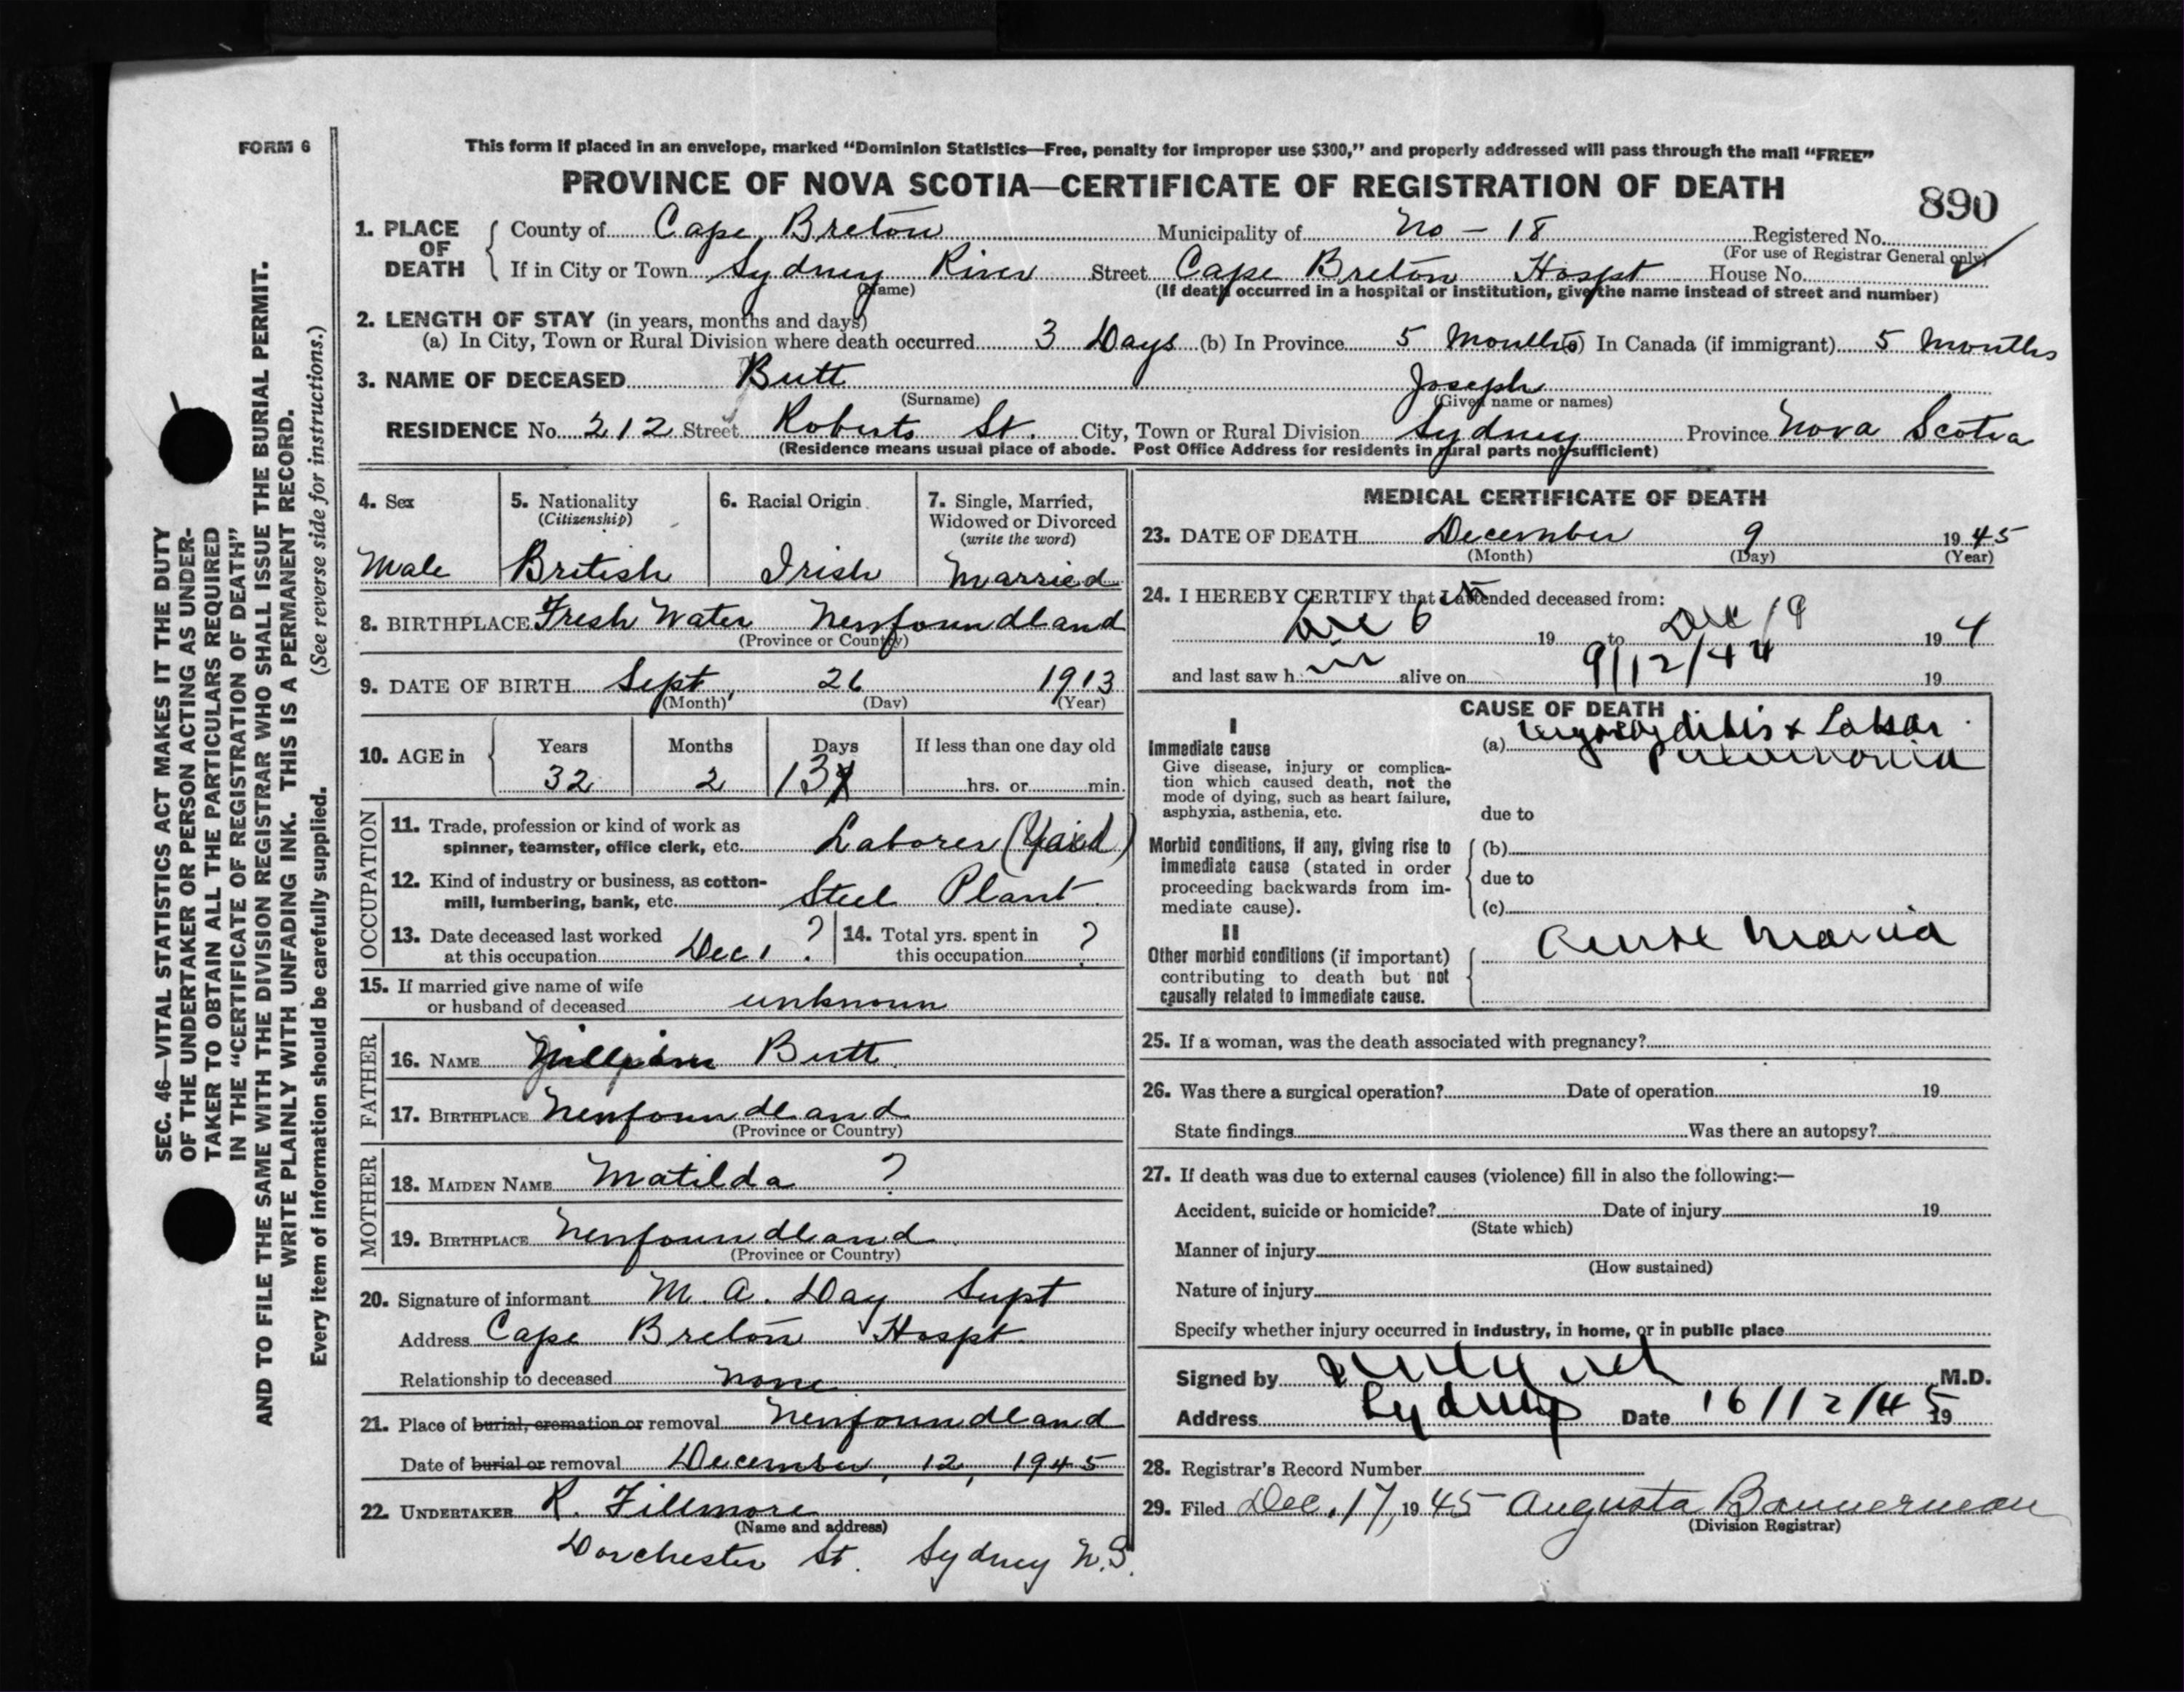 FORM 6
This form if placed in an envelope, marked “Dominion Statistics—Free, penalty for improper use $300,” and properly addressed will pass through the mail “FREE”
PROVINCE OF NOVA SCOTIA—CERTIFICATE OF REGISTRATION OF DEATH
890
1. PLACE OF DEATH
County of Cape Breton Municipality of No - 18 Registered No.
(For use of Registrar General only)
If in City or Town Sydney River Street Cape Breton Hospt House No.
(Name) (If death occurred in a hospital or institution, give the name instead of street and number)
2. LENGTH OF STAY (in years, months and days)
(a) In City, Town or Rural Division where death occurred 3 Days (b) In Province 5 Months (c) In Canada (if immigrant) 5 months
3. NAME OF DECEASED Butt Joseph
(Surname) (Given name or names)
RESIDENCE No. 212 Street Roberts St. City, Town or Rural Division Sydney Province Nova Scotia
(Residence means usual place of abode. Post Office Address for residents in rural parts not sufficient)
4. Sex
Male
5. Nationality
(Citizenship)
British
6. Racial Origin
Irish
7. Single, Married,
Widowed or Divorced
(write the word)
Married
8. BIRTHPLACE Fresh Water Newfoundland
(Province or Country)
9. DATE OF BIRTH Sept. 26 1913
(Month) (Day) (Year)
10. AGE in
Years Months Days If less than one day old
32 2 13 hrs. or min.
OCCUPATION
11. Trade, profession or kind of work as
spinner, teamster, office clerk, etc. Laborer (Yard)
12. Kind of industry or business, as cotton-
mill, lumbering, bank, etc. Steel Plant
13. Date deceased last worked
at this occupation Dec 1 ?
14. Total yrs. spent in
this occupation ?
15. If married give name of wife
or husband of deceased unknown
FATHER
16. NAME William Butt
17. BIRTHPLACE Newfoundland
(Province or Country)
MOTHER
18. MAIDEN NAME Matilda ?
19. BIRTHPLACE Newfoundland
(Province or Country)
20. Signature of informant M. A. Day Supt
Address Cape Breton Hospt.
Relationship to deceased none
21. Place of burial, cremation or removal Newfoundland
Date of burial or removal December, 12, 1945
22. UNDERTAKER R. Fillmore
(Name and address)
Dorchester St. Sydney N.S.
MEDICAL CERTIFICATE OF DEATH
23. DATE OF DEATH December 9 1945
(Month) (Day) (Year)
24. I HEREBY CERTIFY that I attended deceased from:
Dec 6 19 to Dec 19 194
and last saw h im alive on 9/12/44 19
CAUSE OF DEATH
I
Immediate cause
Give disease, injury or complica-
tion which caused death, not the
mode of dying, such as heart failure,
asphyxia, asthenia, etc.
(a) & Lobar
Pneumonia
due to
Morbid conditions, if any, giving rise to
immediate cause (stated in order
proceeding backwards from im-
mediate cause).
(b)
due to
(c)
II
Other morbid conditions (if important)
contributing to death but not
causally related to immediate cause.
Acute Mania
25. If a woman, was the death associated with pregnancy?
26. Was there a surgical operation? Date of operation 19
State findings Was there an autopsy?
27. If death was due to external causes (violence) fill in also the following:—
Accident, suicide or homicide? Date of injury 19
(State which)
Manner of injury
(How sustained)
Nature of injury
Specify whether injury occurred in industry, in home, or in public place
Signed by M.D.
Address Sydney Date 16/12/45 19
28. Registrar's Record Number
29. Filed Dec. 17, 1945 Augusta Bannerman
(Division Registrar)
SEC. 46—VITAL STATISTICS ACT MAKES IT THE DUTY
OF THE UNDERTAKER OR PERSON ACTING AS UNDER-
TAKER TO OBTAIN ALL THE PARTICULARS REQUIRED
IN THE “CERTIFICATE OF REGISTRATION OF DEATH”
AND TO FILE THE SAME WITH THE DIVISION REGISTRAR WHO SHALL ISSUE THE BURIAL PERMIT.
WRITE PLAINLY WITH UNFADING INK. THIS IS A PERMANENT RECORD.
Every item of information should be carefully supplied. (See reverse side for instructions.)